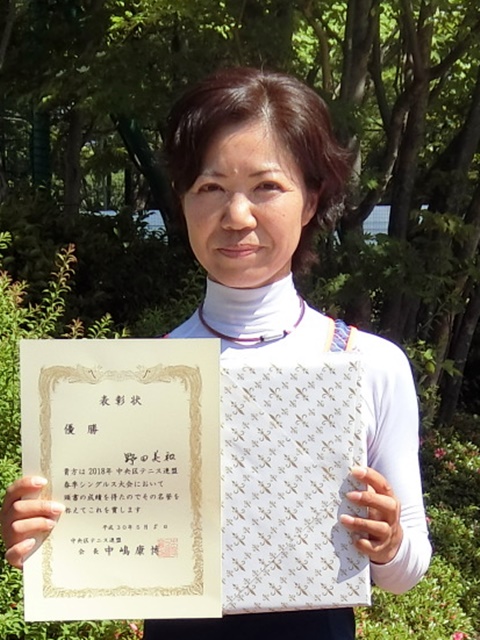 表彰状
優勝
野田美和
貴方は2018年 中央区テニス連盟
春季シングルス大会において
頭書の成績を得たのでその名誉を
称えてこれを賞します
平成30年5月
中央区テニス連盟
会長 中嶋康博